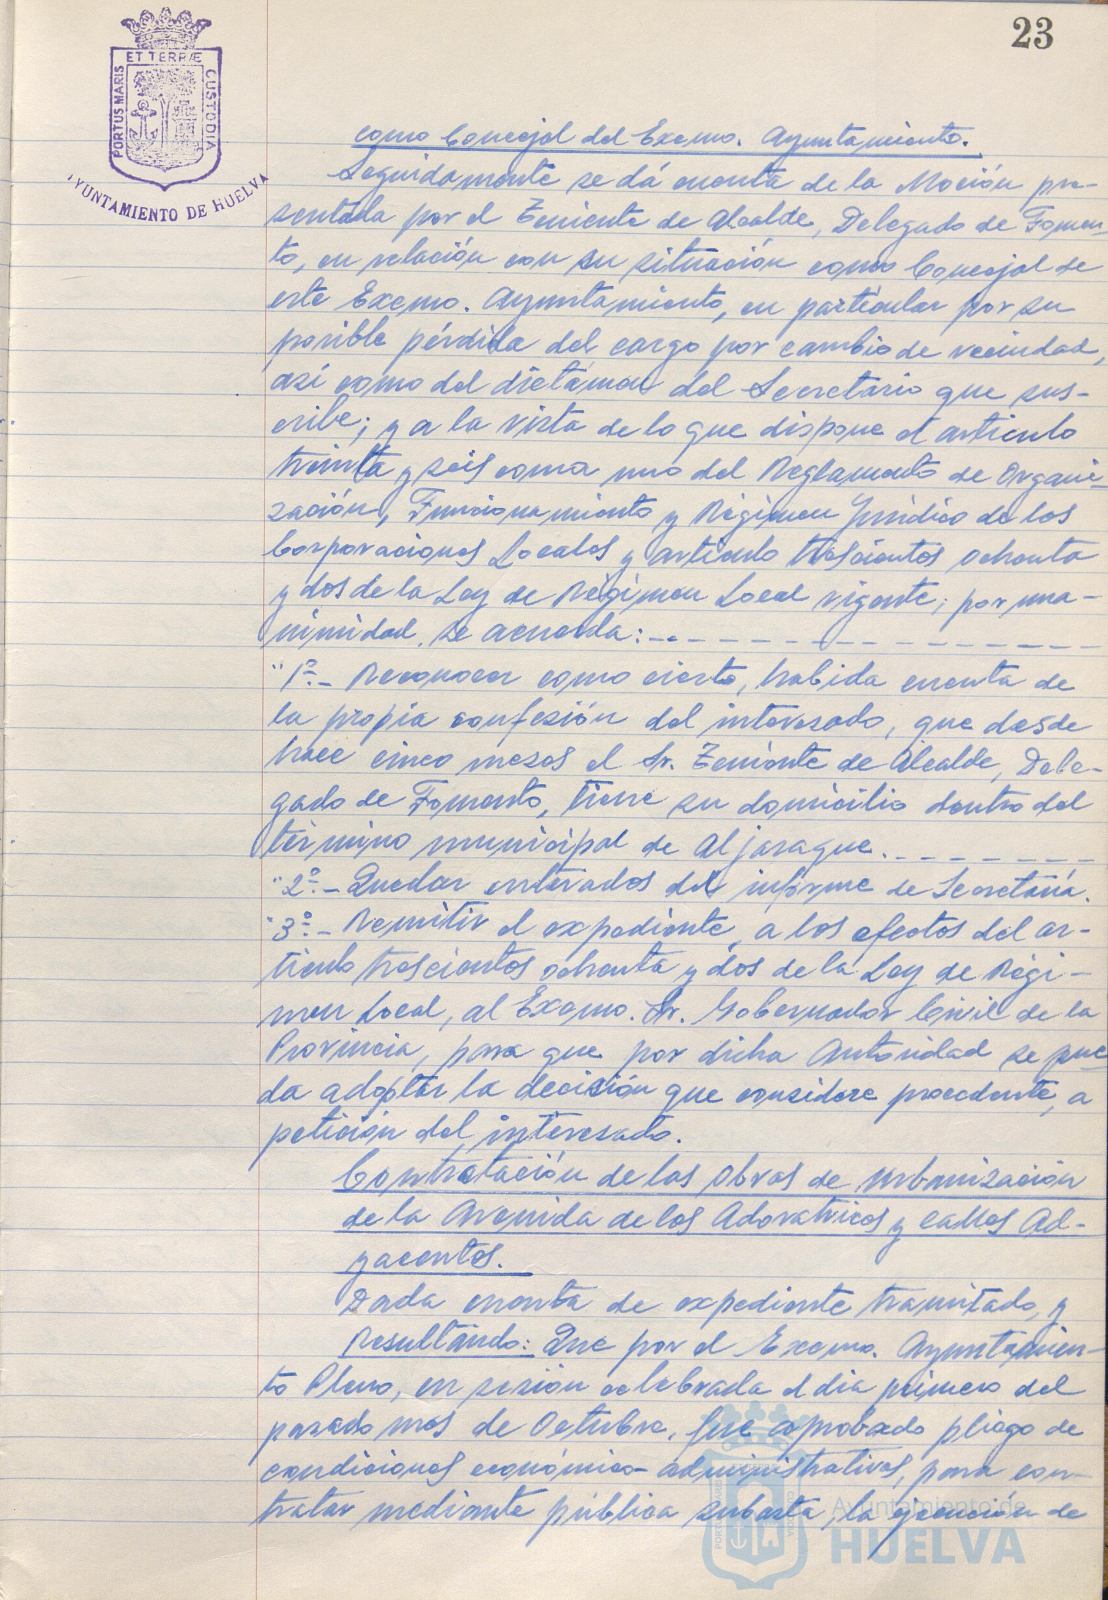 23
PORTUS MARIS ET TERRÆ CUSTODIA
AYUNTAMIENTO DE HUELVA
como Concejal del Excmo. Ayuntamiento.
Seguidamente se dá cuenta de la Moción pre-
sentada por el Teniente de Alcalde, Delegado de Fomen-
to, en relación con su situación como Concejal de
este Excmo. Ayuntamiento, en particular por su
posible pérdida del cargo por cambio de vecindad,
así como del dictámen del Secretario que sus-
cribe; y a la vista de lo que dispone el artículo
treinta y seis coma uno del Reglamento de Organi-
zación, Funcionamiento y Régimen Jurídico de las
Corporaciones Locales y artículo trescientos ochenta
y dos de la Ley de Régimen Local vigente; por una-
nimidad, se acuerda:
"1º.- Reconocer como cierto, habida cuenta de
la propia confesión del interesado, que desde
hace cinco meses el Sr. Teniente de Alcalde, Dele-
gado de Fomento, tiene su domicilio dentro del
término municipal de Aljaraque.
"2º.- Quedar enterados del informe de Secretaría.
"3º.- Remitir el expediente, a los efectos del ar-
tículo trescientos ochenta y dos de la Ley de Régi-
men Local, al Excmo. Sr. Gobernador Civil de la
Provincia, para que por dicha Autoridad se pue
da adoptar la decisión que considere procedente, a
petición del interesado.
Contratación de las obras de urbanización
de la Avenida de las Adoratrices y calles Ad-
yacentes.
Dada cuenta de expediente tramitado, y
Resultando: Que por el Excmo. Ayuntamien-
to Pleno, en sesión celebrada el día primero del
pasado mes de Octubre, fue aprobado pliego de
condiciones económico-administrativas, para con-
tratar mediante pública subasta, la ejecución de
Ayuntamiento de
HUELVA